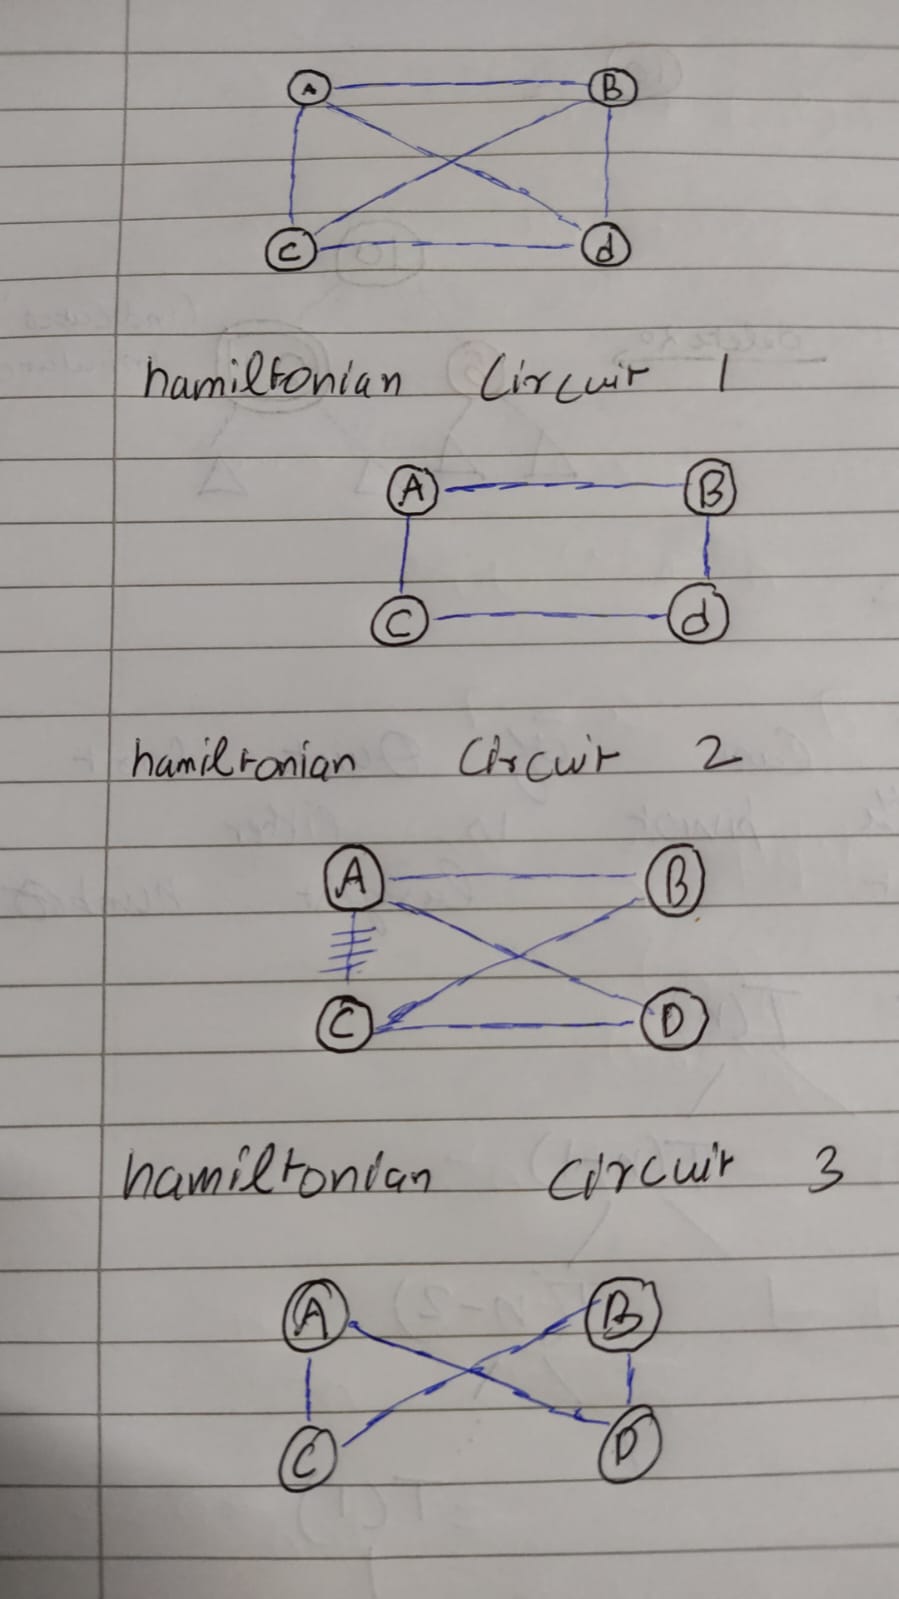 A B
C d
hamiltonian Circuit 1
A B
C d
hamiltonian Circuit 2
A B
C D
hamiltonian Circuit 3
A B
C D